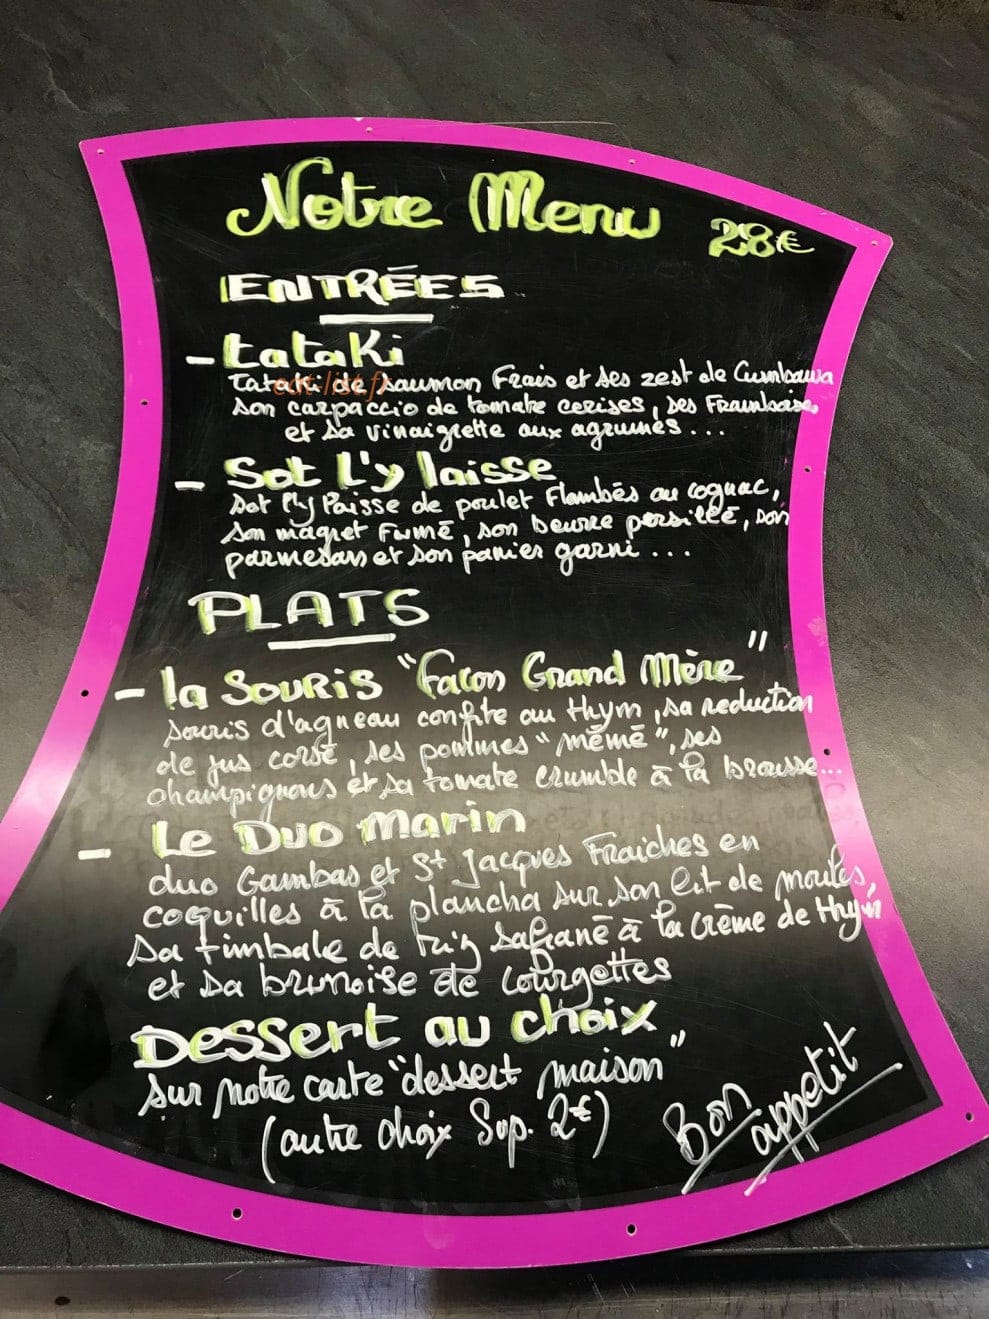 Notre Menu 28€
ENTRÉES
- tataki
tataki de saumon Frais et ses zest de Cumbawa
son carpaccio de tomate cerises, ses Framboise,
et sa vinaigrette aux agrumes...
- Sot l'y laisse
sot l'y laisse de poulet Flambés au cognac,
son magret Fumé, son beurre persillé, son
parmesan et son panier garni...
PLATS
- la SOURIS "Facon Grand Mère"
souris d'agneau confite au thym, sa reduction
de jus corsé, ses pommes "mémé", ses
champignons et sa tomate crumble à la brousse...
- Le Duo Marin
duo Gambas et St Jacques Fraiches en
coquilles à la plancha sur son lit de moules,
sa timbale de riz safrané à la crème de thym
et sa brunoise de courgettes
Dessert au choix
sur notre carte "dessert maison"
(autre choix Sup. 2€)
Bon
appetit